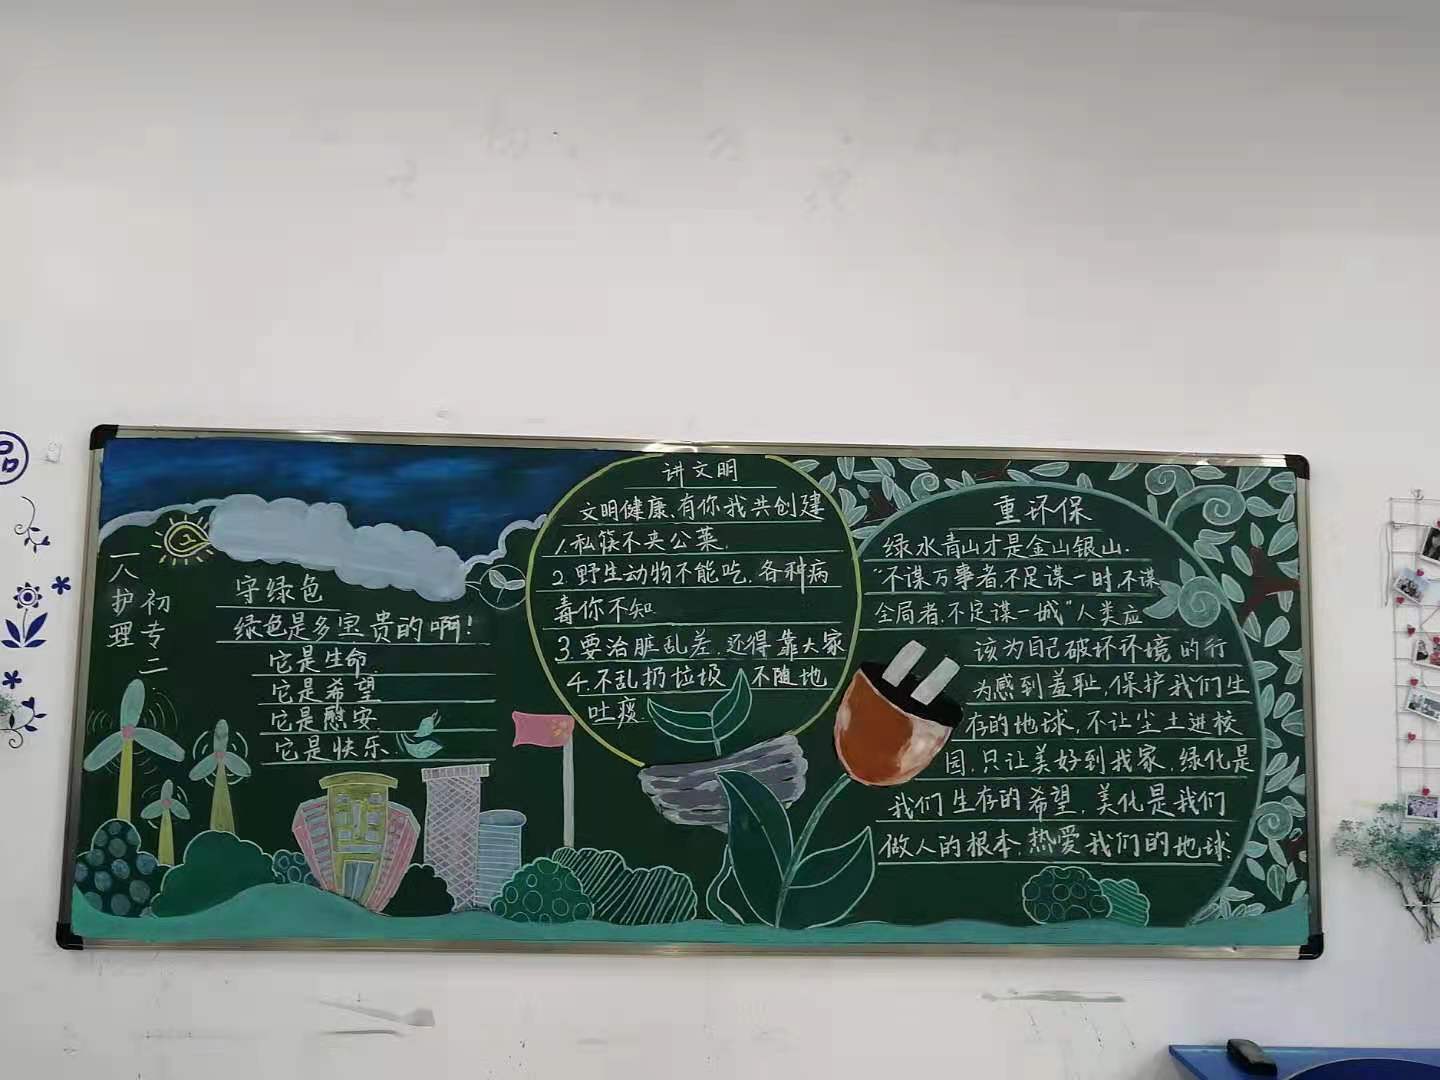 一八护理
初专二
守绿色
绿色是多宝贵的啊!
它是生命.
它是希望
它是慰安.
它是快乐.
讲文明
文明健康、有你我共创建
1.私筷不夹公菜.
2.野生动物不能吃.各种病
毒你不知
3.要治脏乱差.还得靠大家
4.不乱扔垃圾 不随地
吐痰.
重环保
绿水青山才是金山银山.
“不谋万事者,不足谋一时,不谋
全局者,不足谋一城”人类应
该为自己破坏环境的行
为感到羞耻,保护我们生
存的地球,不让尘土进校
园,只让美好到我家,绿化是
我们生存的希望,美化是我们
做人的根本,热爱我们的地球.
品